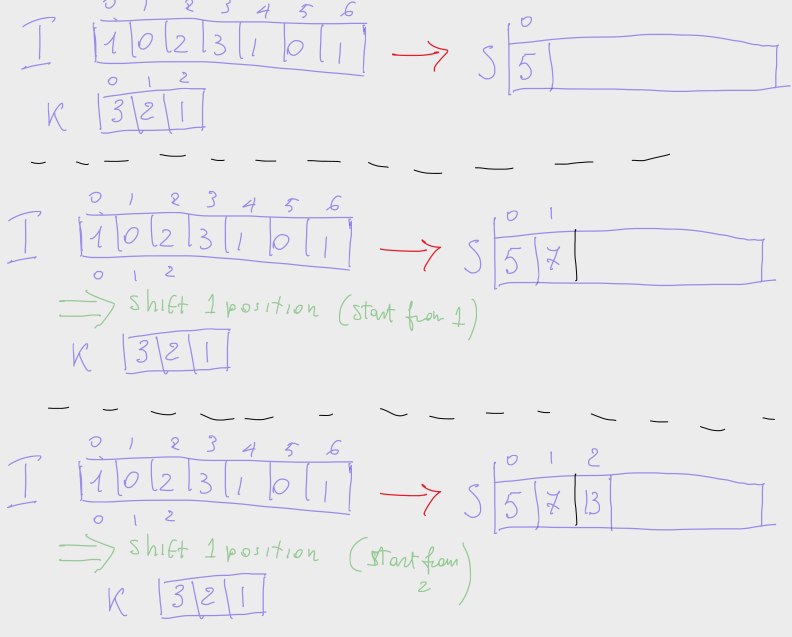 0 1 2 3 4 5 6
0
I 1 0 2 3 1 0 1 → S 5
0 1 2
K 3 2 1
0 1 2 3 4 5 6
0 1
I 1 0 2 3 1 0 1 → S 5 7
0 1 2
⇒ Shift 1 position (Start from 1)
K 3 2 1
0 1 2 3 4 5 6
0 1 2
I 1 0 2 3 1 0 1 → S 5 7 13
0 1 2
⇒ Shift 1 position (Start from
2)
K 3 2 1